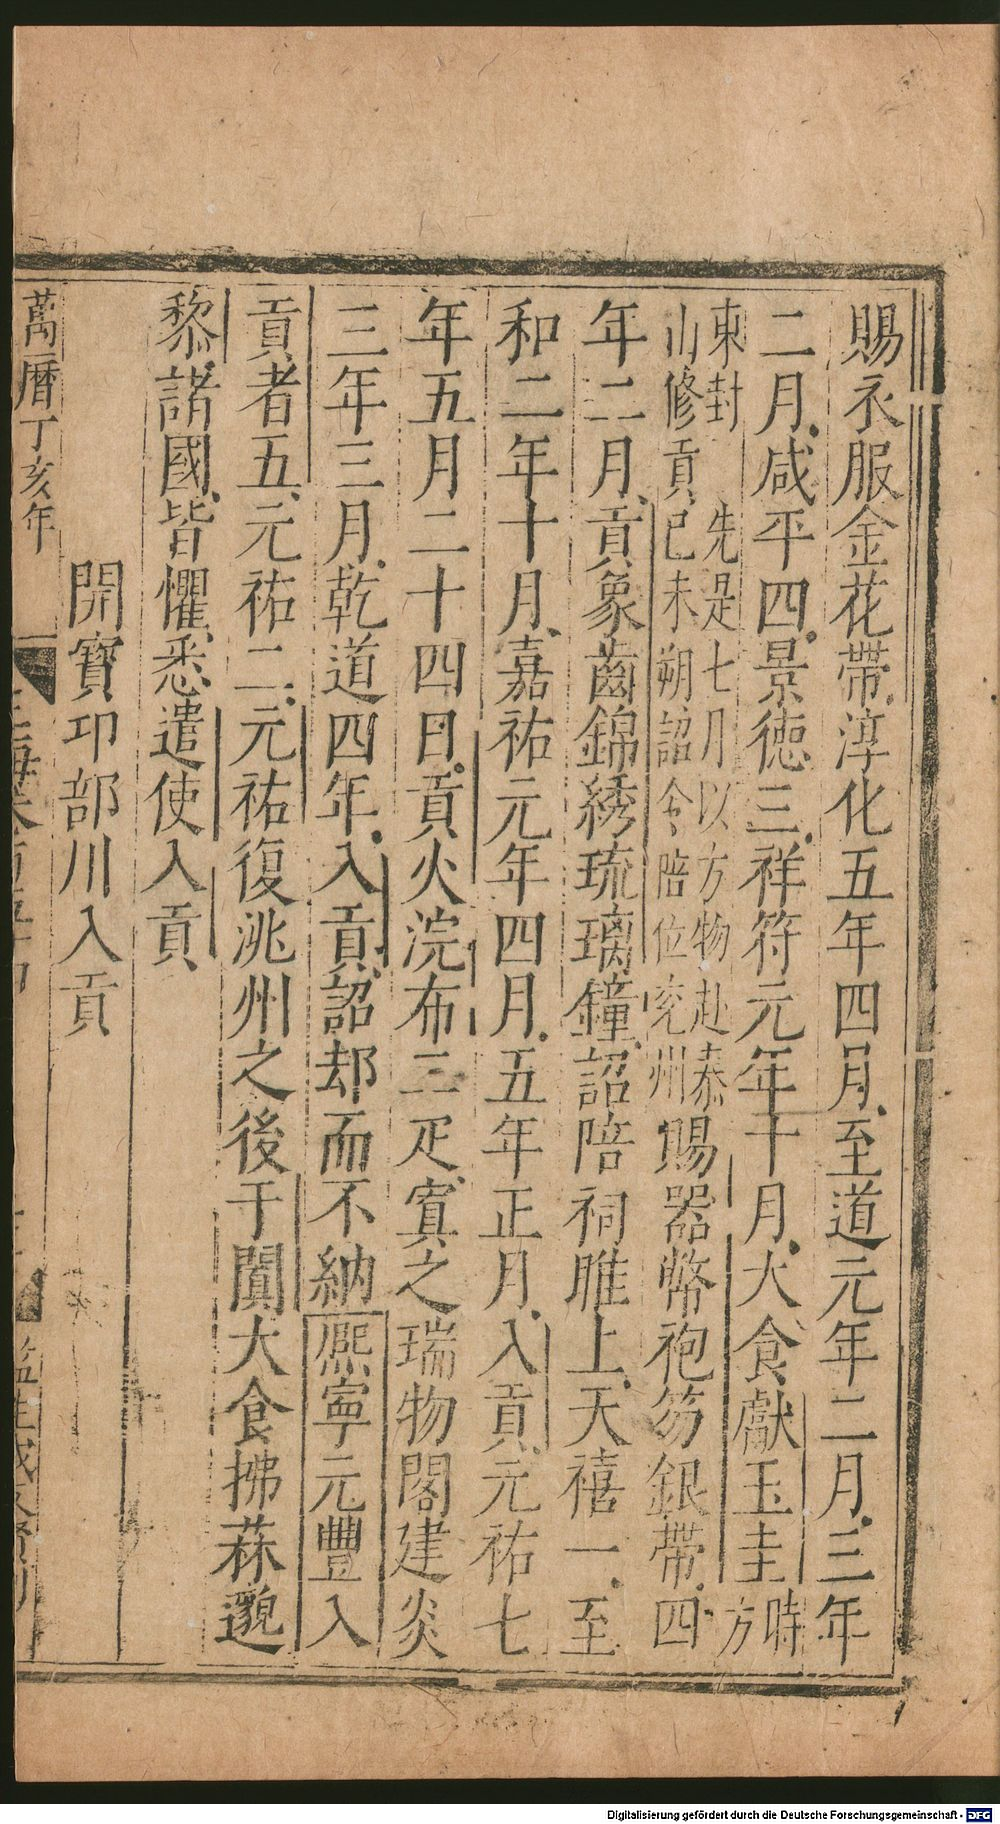 賜衣服金花帶淳化五年四月至道元年二月三年
二月咸平四景德三祥符元年十月大食獻玉圭時方
東封山修貢先是七月以方物赴泰已未朔詔令陪位兖州賜器幣袍笏銀帶四
年二月貢象齒錦綉琉璃鐘詔陪祠脽上天禧一至
和二年十月嘉祐元年四月五年正月入貢元祐七
年五月二十四日貢火浣布三疋寘之瑞物閣建炎
三年三月乾道四年入貢詔却而不納熈寧元豐入
貢者五元祐二元祐復洮州之後于闐大食拂菻邈
黎諸國皆懼悉遣使入貢
開寶邛部川入貢
萬曆丁亥年
Digitalisierung gefördert durch die Deutsche Forschungsgemeinschaft - DFG